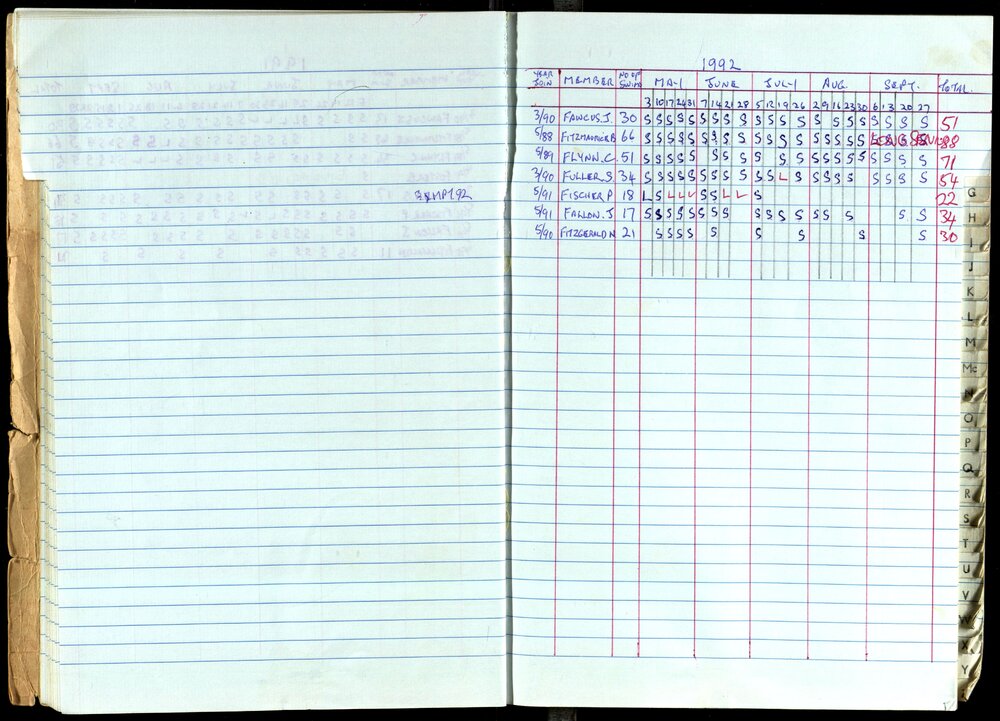 1992
YEAR JOIN MEMBER NO OF SWIMS MAY JUNE JULY AUG. SEPT. TOTAL.
3 10 17 24 31 7 14 21 28 5 12 19 26 2 9 16 23 30 6 13 20 27
3/90 FAWCUS.J. 30 S S S S S S S S S S S S S S S S S S S S S S 51
5/88 FITZMAURICE B 66 S S S S S S S S S S S S S S S S S S 88
5/89 FLYNN.C. 51 S S S S S S S S S S S S S S S S S S S S 71
3/90 FULLER.S. 34 S S S S S S S S S S S L S S S S S S S S S 54
5/91 FISCHER P 18 L S L L L S S L L S 22
5/91 FALLON.J 17 S S S S S S S S S S S S S S S S S 34
5/90 FITZGERALD N 21 S S S S S S S S S 30
G
H
I
J
K
L
M
Mc
N
O
P
Q
R
S
T
U
V
W
X
Y